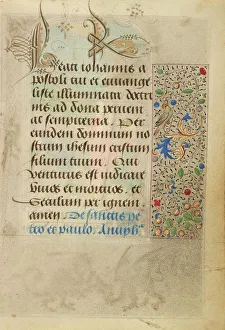 Beati iohannis a
postoli tui et euuange
liste illuminata doctri
nis ad dona perueni
at sempiterna. Per
eundem dominum no
strum ihesum cristum
filium tuum. Qui
venturus est iudicare
viuos et mortuos et
seculum per ignem
amen. De sanctis pe
tro et paulo. Antiph